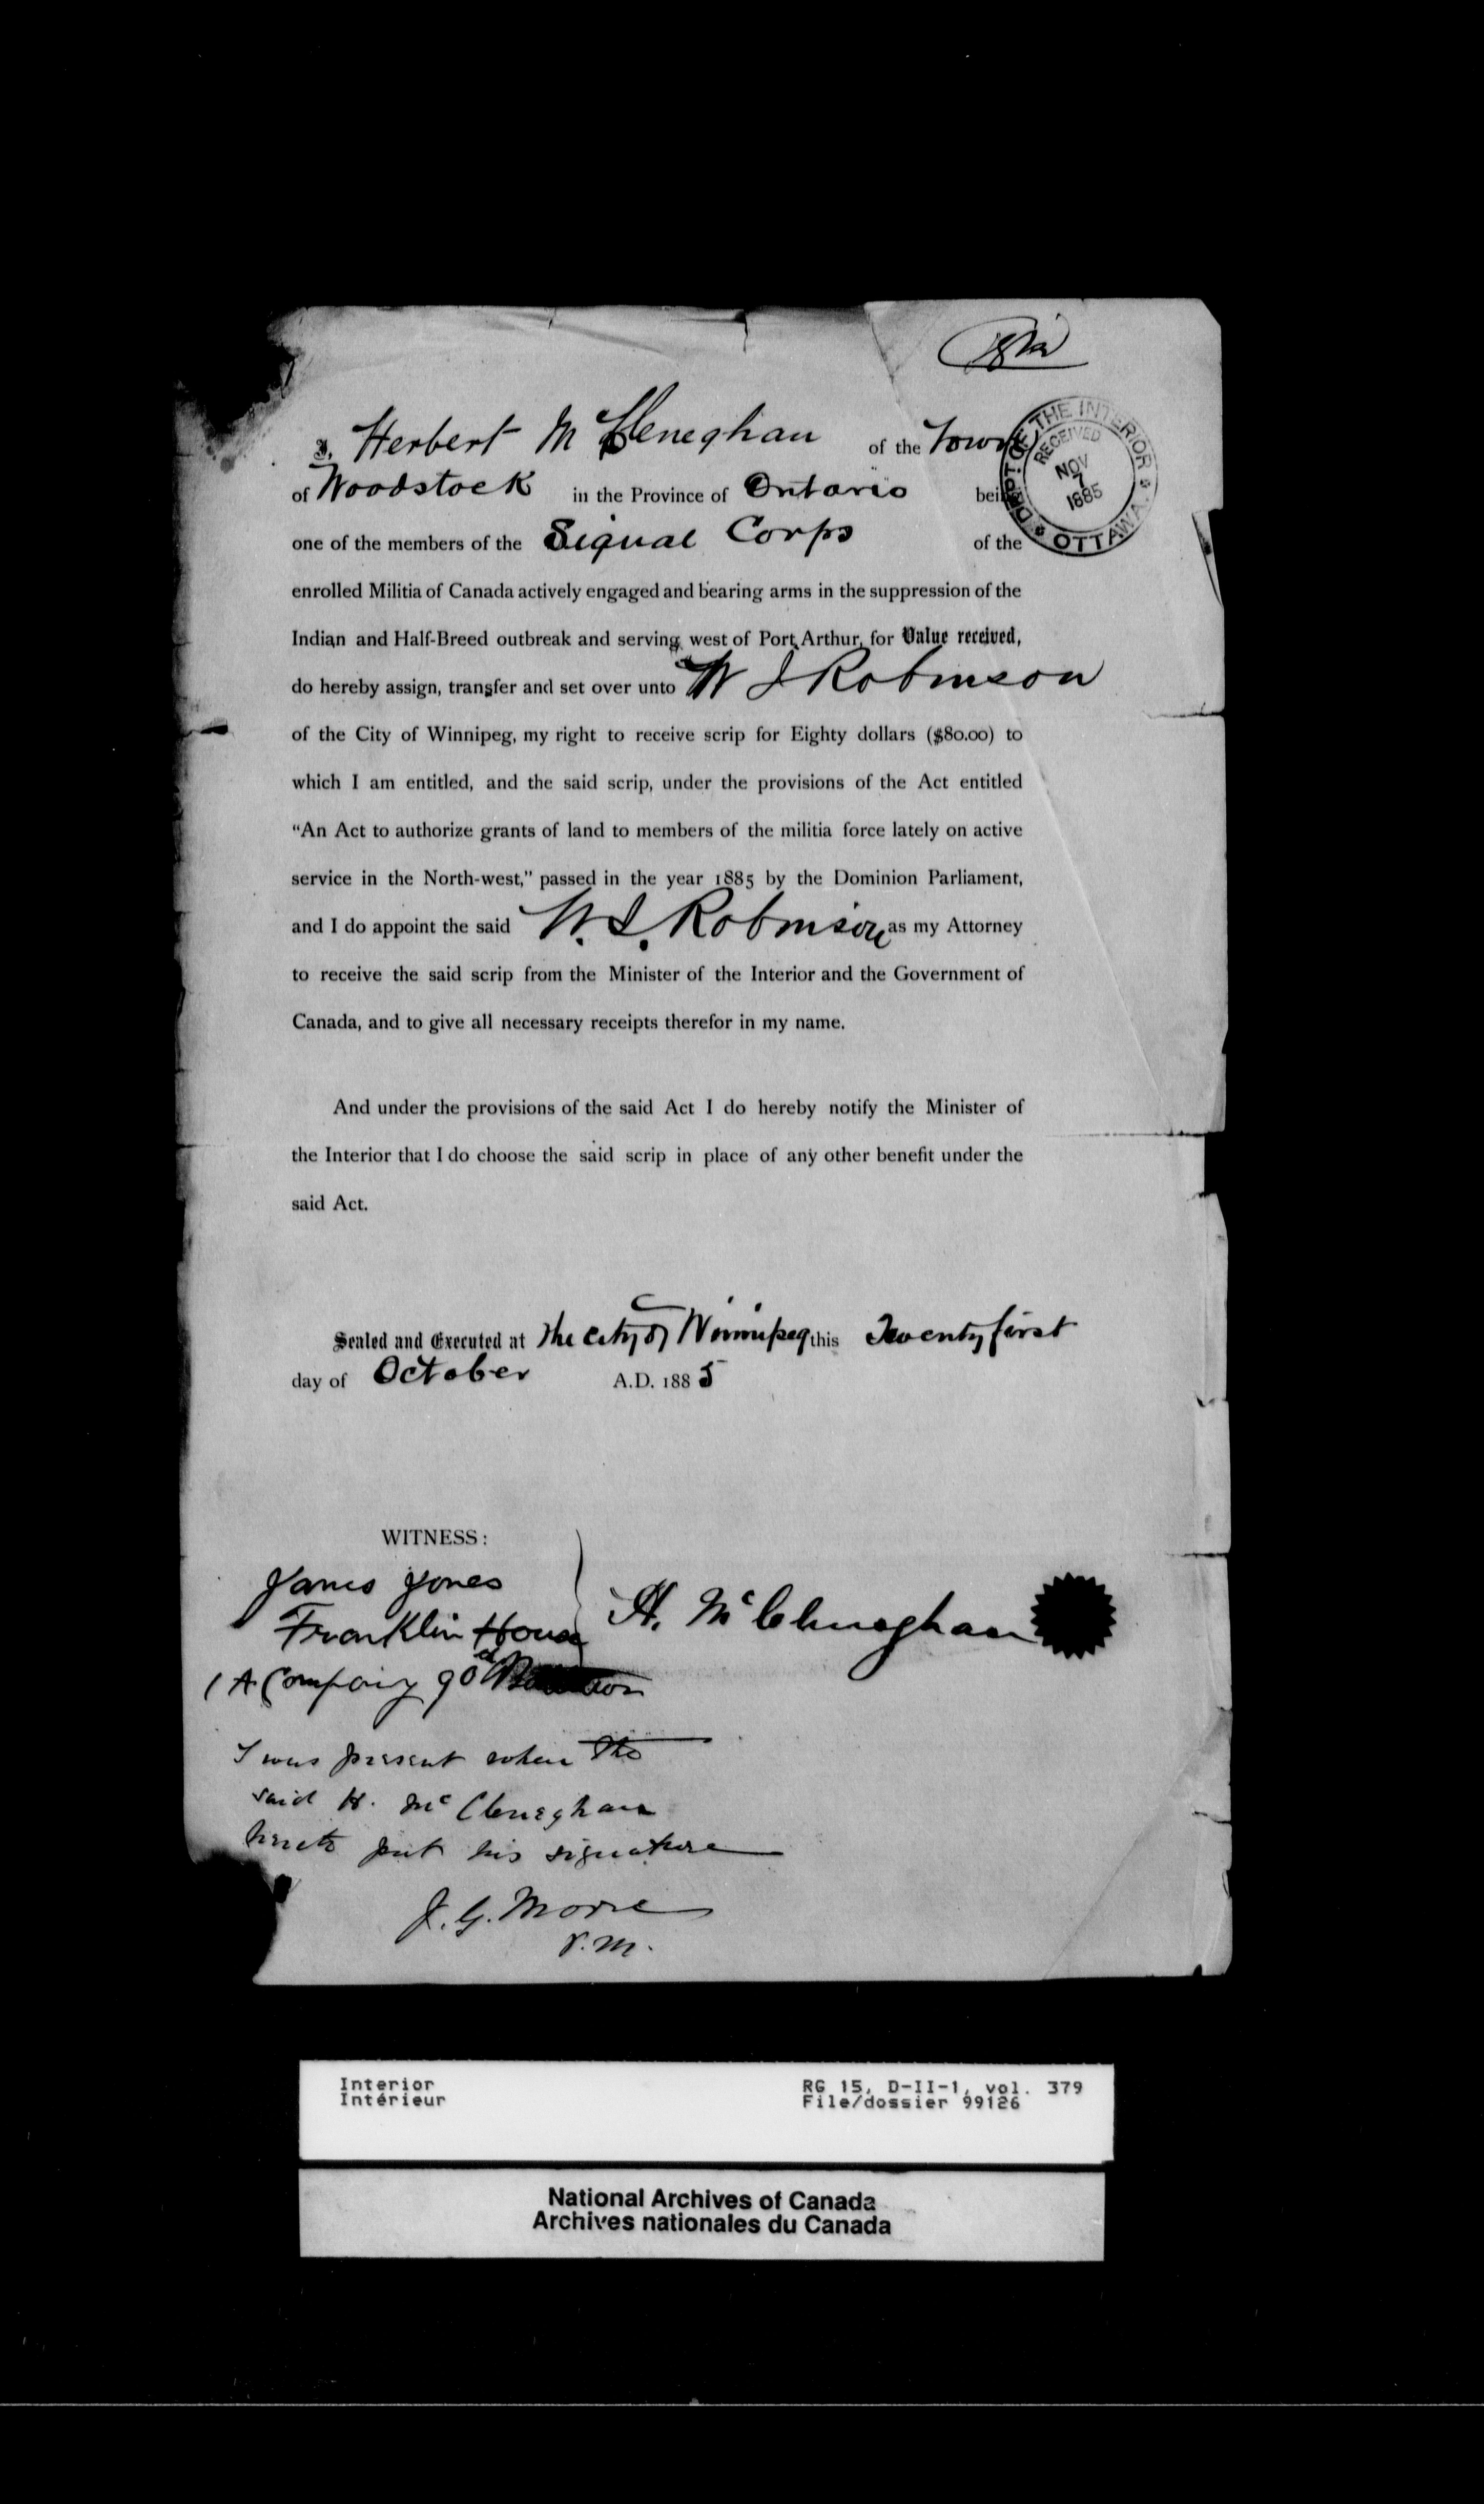 I, Herbert McCleneghan of the Town
of Woodstock in the Province of Ontario being
one of the members of the Signal Corps of the
enrolled Militia of Canada actively engaged and bearing arms in the suppression of the
Indian and Half-Breed outbreak and serving west of Port Arthur, for Value received,
do hereby assign, transfer and set over unto W J Robinson
of the City of Winnipeg, my right to receive scrip for Eighty dollars ($80.00) to
which I am entitled, and the said scrip, under the provisions of the Act entitled
"An Act to authorize grants of land to members of the militia force lately on active
service in the North-west," passed in the year 1885 by the Dominion Parliament,
and I do appoint the said W. J. Robinson as my Attorney
to receive the said scrip from the Minister of the Interior and the Government of
Canada, and to give all necessary receipts therefor in my name.
And under the provisions of the said Act I do hereby notify the Minister of
the Interior that I do choose the said scrip in place of any other benefit under the
said Act.
Sealed and Executed at the City of Winnipeg this Twenty first
day of October A.D. 1885
DEPT. OF THE INTERIOR
RECEIVED
NOV
7
1885
OTTAWA.
WITNESS:
James Jones
Franklin House
A Company 90th Battalion
H. McCleneghan
I was present when the
said H. McCleneghan
hereto put his signature
J. G. Moore
P.M.
Interior
Intérieur
RG 15, D-II-1, vol. 379
File/dossier 99126
National Archives of Canada
Archives nationales du Canada